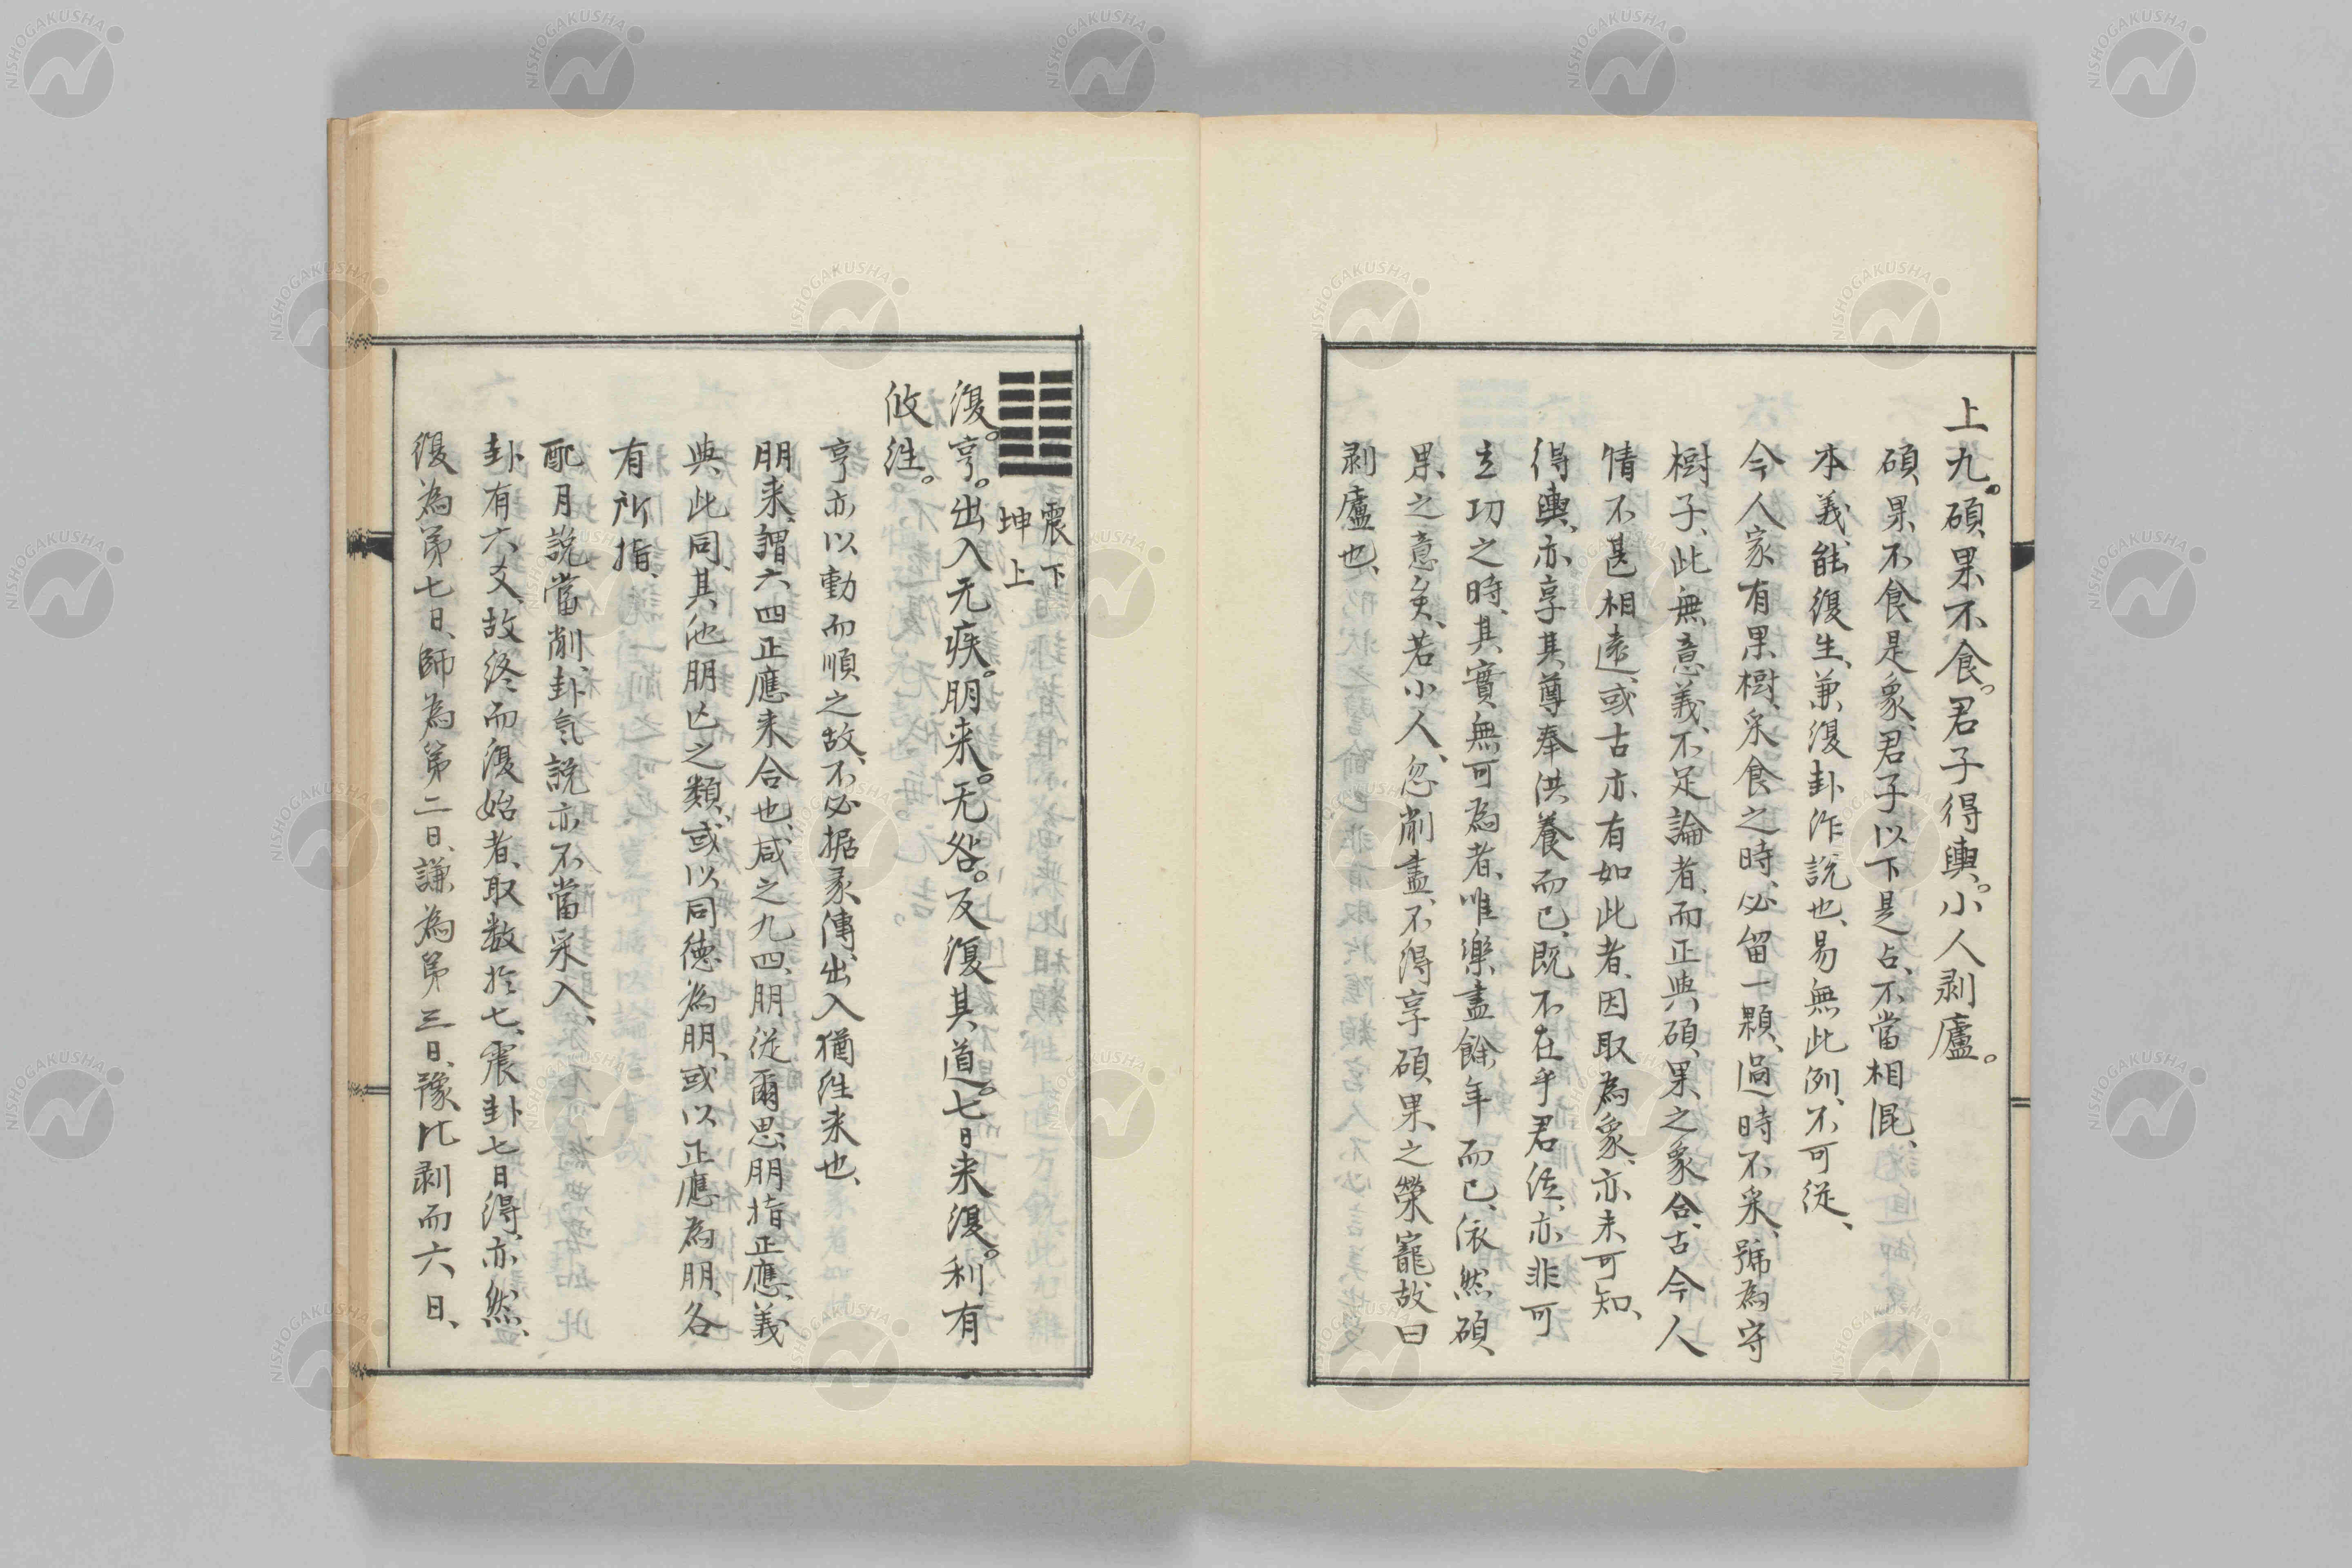 上九。碩果不食。君子得輿。小人剥廬。
碩果不食是象、君子以下是占、不當相混、
本義、能復生、兼復卦作說也、易無此例、不可從、
今人家有果樹、采食之時、必留一顆、過時不采、號為守
樹子、此無意義、不足論者、而正與碩果之象合、古今人
情不甚相遠、或古亦有如此者、因取為象、亦未可知、
得輿、亦享其尊奉供養而已、既不在乎君位、亦非可
立功之時、其實無可為者、唯樂盡餘年而已、依然碩
果之意矣、若小人、忽削盡、不得享碩果之榮寵、故曰
剥廬也、
震下
坤上
復。亨。出入无疾。朋来。无咎。反復其道。七日来復。利有
攸往。
亨亦以動而順之故、不必据彖傳、出入猶往来也、
朋来、謂六四正應来合也、咸之九四、朋從爾思、朋指正應、義
與此同、其他朋亡之類、或以同德為朋、或以正應為朋、各
有所指、
配月說當削、卦氣說亦不當采入、
卦有六爻、故終而復始者、取數於七、震卦七日得、亦然、
復為第七日、師為第二日、謙為第三日、豫比剥而六日、